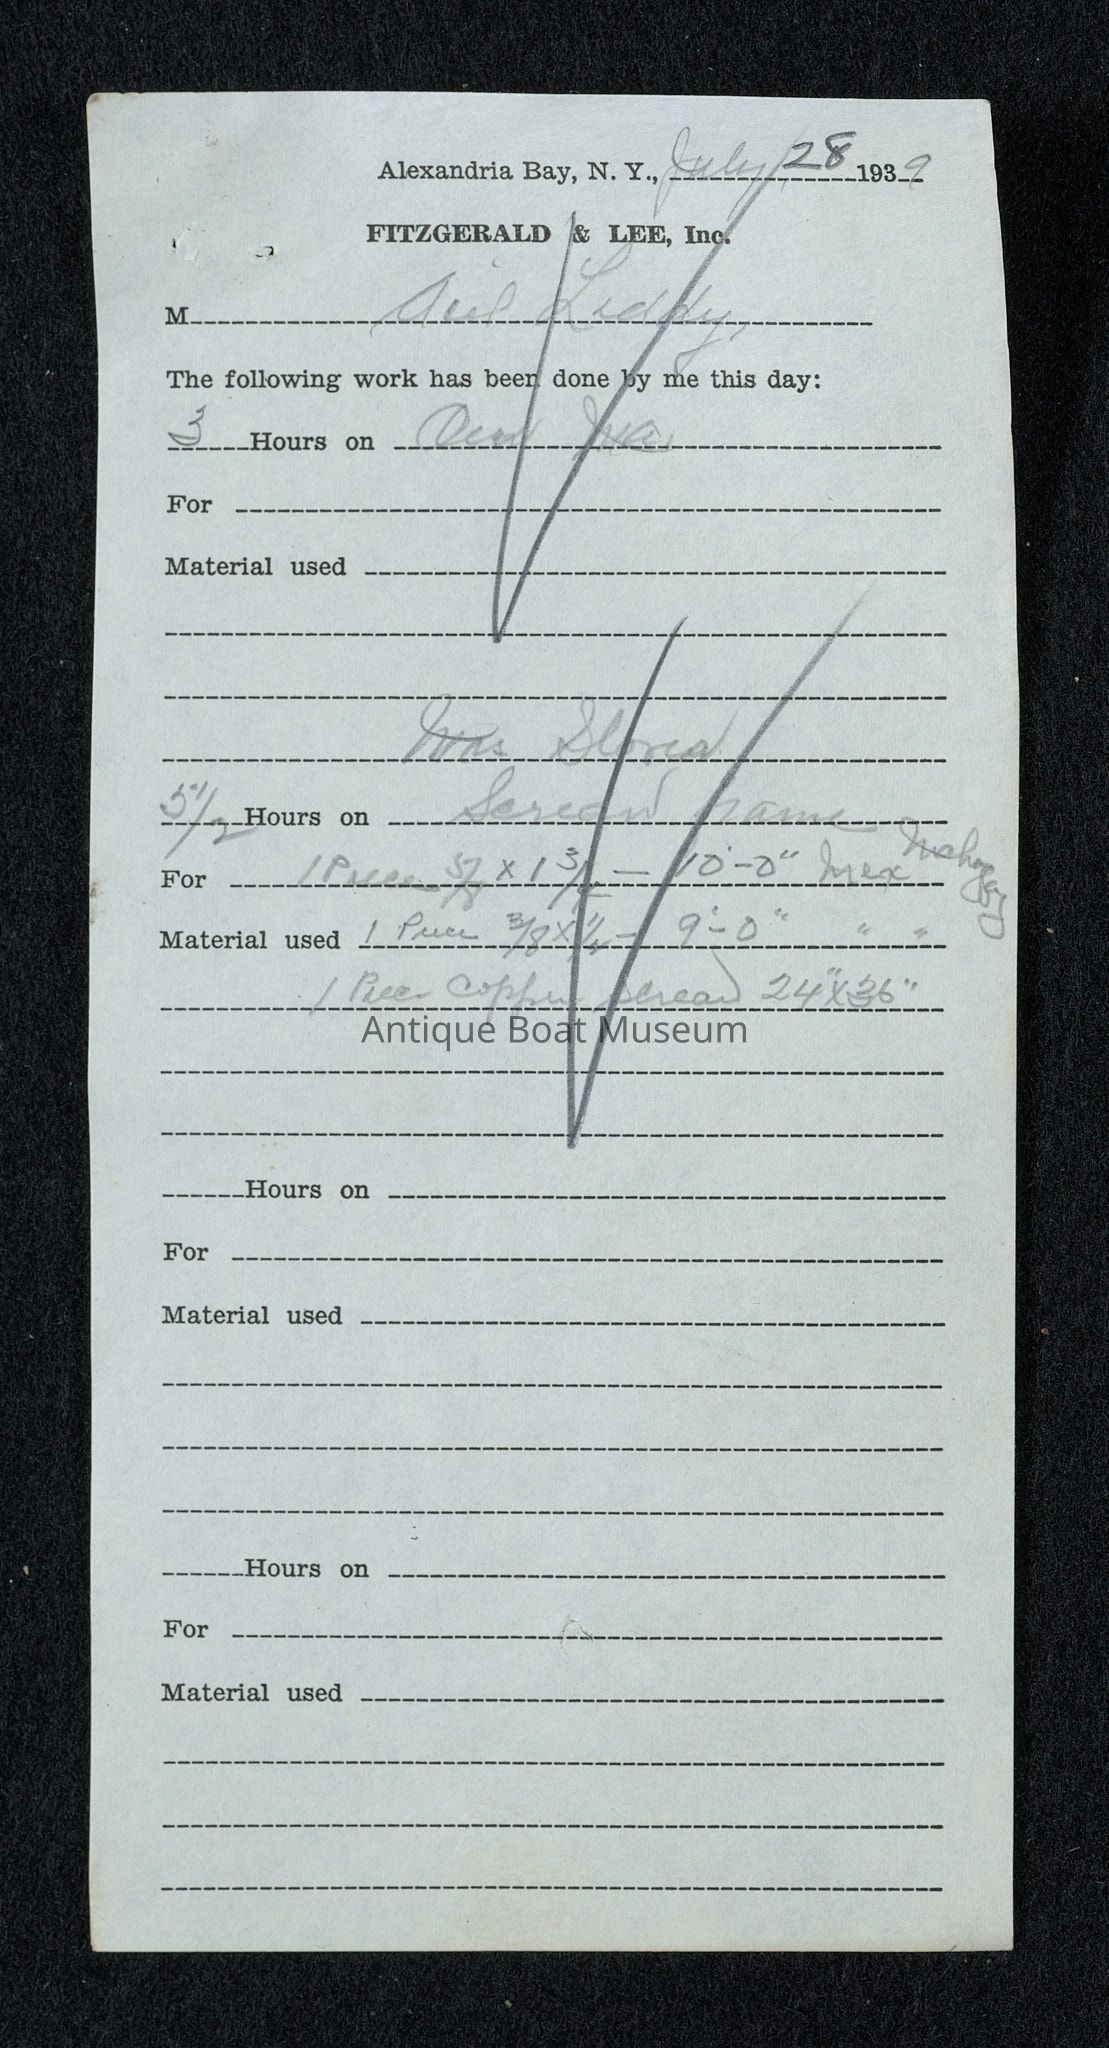 Alexandria Bay, N. Y., July 28 1939
FITZGERALD & LEE, Inc.
M Liddy,
The following work has been done by me this day:
3 Hours on
For
Material used
Mrs
5 1/2 Hours on Screan frame
For 1 Piece 5/8 x 1 3/4 — 10'-0" Mex Mahogany
Material used 1 Piece 3/8 x 1/4 - 9'-0" " "
1 Piece Copper Screan 24" x 36"
Antique Boat Museum
Hours on
For
Material used
Hours on
For
Material used